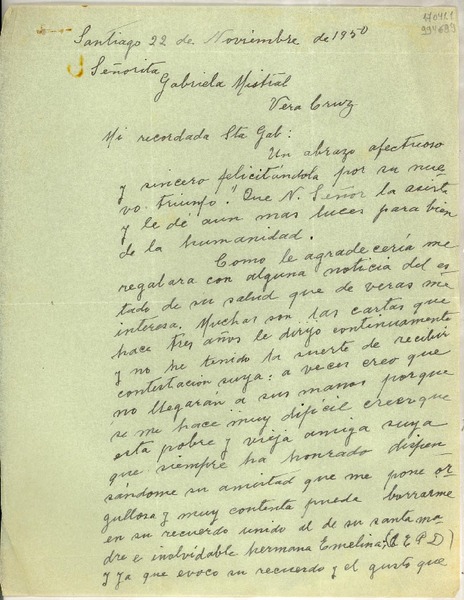 170411
994699
Santiago 22 de Noviembre de 1950
Señorita
Gabriela Mistral
Vera Cruz
Mi recordada Sta Gab:
Un abrazo afectuoso
y sincero felicitándola por su nue
vo triunfo. Que N. Señor la asista
y le dé aun mas luces para bien
de la humanidad.
Como le agradecería me
regalara con alguna noticia del es
tado de su salud que de veras me
interesa. Muchas son las cartas que
hace tres años le dirijo continuamente
y no he tenido la suerte de recibir
contestación suya: a veces creo que
no llegarán a sus manos porque
se me hace muy difícil creer que
esta pobre y vieja amiga suya
que siempre ha honrado dispen
sándome su amistad que me pone or
gullosa y muy contenta pueda borrarme
en su recuerdo unido al de su santa ma
dre e inolvidable hermana Emelina (Q E P D)
y ya que evoco su recuerdo y el gusto que